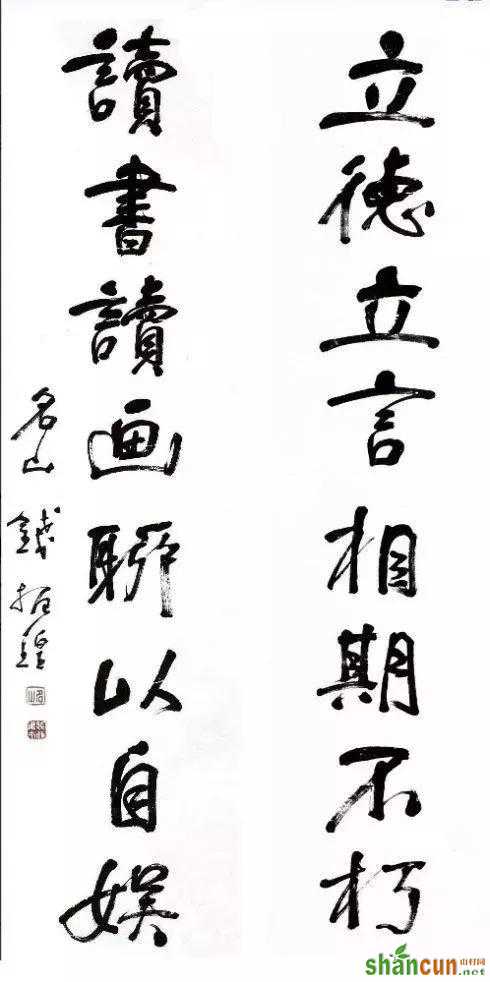 立德立言相期不朽
讀書讀画聊以自娛
名山 錢振鍠
shancun
山村网
.net